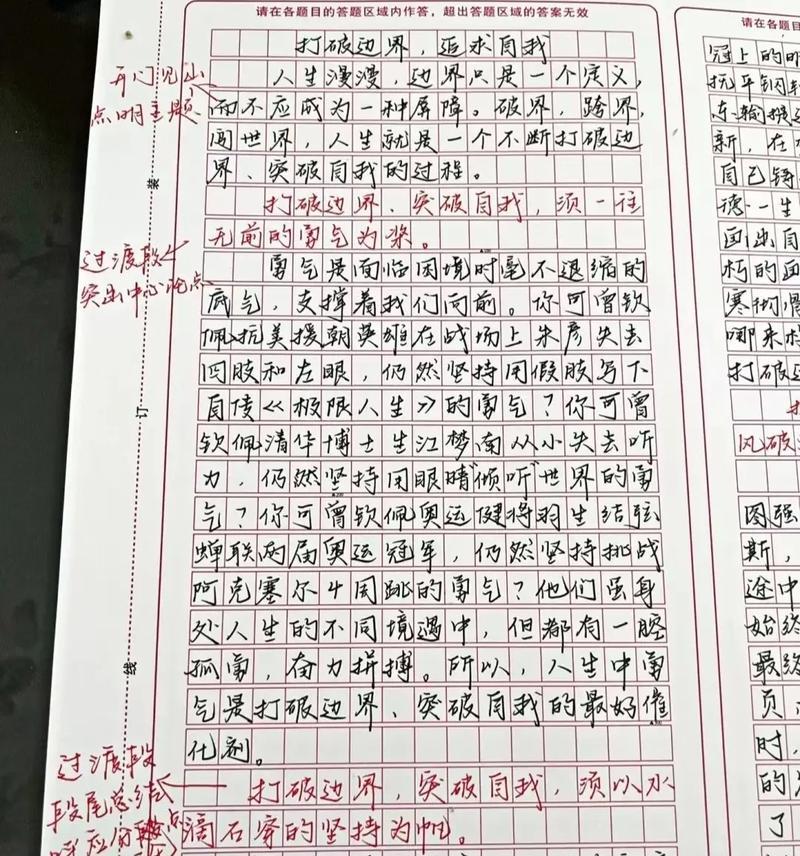 请在各题目的答题区域内作答，超出答题区域的答案无效
打破边界，追求自我
人生漫漫，边界只是一个定义，
而不应成为一种屏障。破界，跨界，
闯世界，人生就是一个不断打破边
界、突破自我的过程。
打破边界、突破自我，须一往
无前的勇气为桨。
勇气是面临困境时毫不退缩的
底气，支撑着我们向前。你可曾钦
佩抗美援朝英雄在战场上朱彦失去
四肢和左眼，仍然坚持用假肢写下
自传《极限人生》的勇气？你可曾
钦佩清华博士生江梦南从小失去听
力，仍然坚持用眼睛"倾听"世界的勇
气？你可曾钦佩奥运健将羽生结弦
蝉联两届奥运冠军，仍然坚持挑战
阿克塞尔4周跳的勇气？他们虽身
处人生的不同境遇中，但都有一腔
孤勇，奋力拼搏。所以，人生中勇
气是打破边界、突破自我的最好催
化剂。
打破边界，突破自我，须以水
滴石穿的坚持为帆。
开门见山
点明主题
过渡段
突出中心论点
过渡段
段尾总结
呼应分
点
装
订
线
请在各题目
冠上的明
抚平
东输
新，在
自己铸
德一生
画出自
朽的画
寒彻
哪来
打破边
风破
图强
斯，
途中
始终
最终
页，
时，
的
了